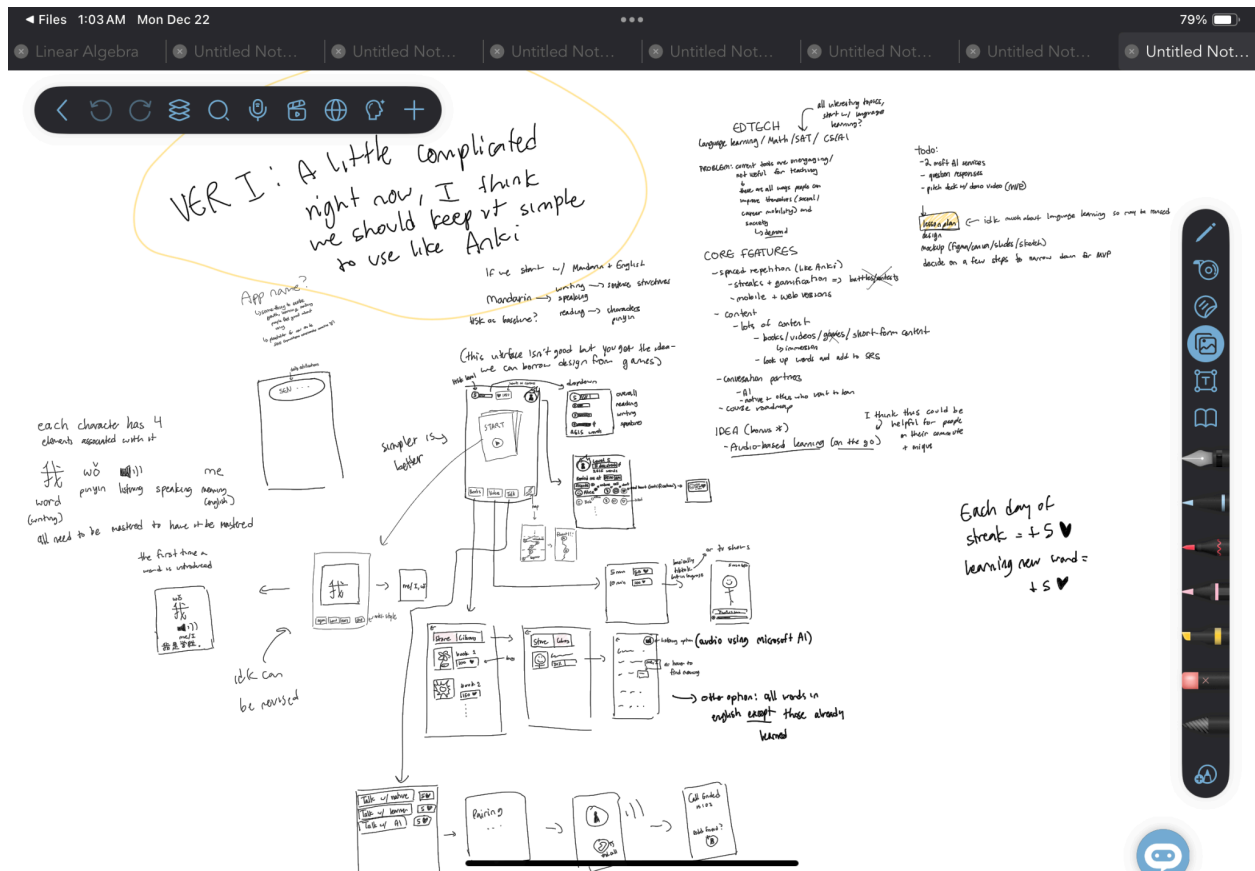 Files 1:03 AM Mon Dec 22
79%
Linear Algebra
Untitled Not...
Untitled Not...
Untitled Not...
Untitled Not...
Untitled Not...
Untitled Not...
Untitled Not...
VER I: A little complicated
right now, I think
we should keep it simple
to use like Anki
all interesting topics,
start w/ language
learning?
EDTECH
Language learning / Math / SAT / CS/AI
PROBLEM: current tools are unengaging /
not useful for teaching
these are all ways people can
improve themselves (social /
career mobility) and
society
demand
CORE FEATURES
- spaced repetition (like Anki)
- streaks + gamification => battles/
- mobile + web versions
- content
- lots of content
- books / videos / games / short-form content
immersion
- look up words and add to SRS
- conversation partners
- AI
- native + others who want to learn
- course roadmap
IDEA (bonus *)
- Audio-based learning (on the go)
I think this could be
helpful for people
on their commute
+ unique
todo:
- 2 msft AI services
- question responses
- pitch deck w/ demo video (MVP)
lesson plan
idk much about language learning so may be revised
design
mockup (figma/canva/slides/sketch)
decide on a few steps to narrow down for MVP
If we start w/ Mandarin + English
Mandarin
writing → sentence structures
speaking
reading → characters
pinyin
HSK as baseline?
App name?
(this interface isn't good but you get the idea-
we can borrow design from games)
HSK level
dropdown
overall
reading
writing
START
simpler is
better
each character has 4
elements associated with it
我 wǒ me
word pinyin listening speaking meaning
(writing) (english)
all need to be mastered to have it be mastered
the first time a
word is introduced
wǒ
我
me/I
我是学生.
我
me/I, wǒ
anki-style
idk can
be revised
Books
Video
Talk
Level 5
Alice
5 min
10 min
basically
tiktok
but in language
or tv shows
Store
Library
book 1
book 2
Store
(audio using Microsoft AI)
or have to
find meaning
other option: all words in
english except those already
learned
Each day of
streak = +5 ♥
learning new word =
+5 ♥
Talk w/ native
Talk w/ learner
Talk w/ AI
5 ♥
Pairing
...
Call Ended
Add friend?